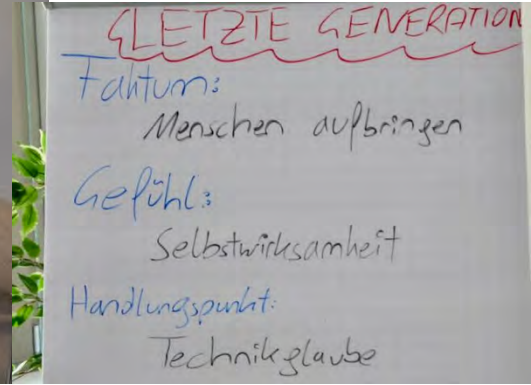 GLETZTE GENERATION
Faktum:
Menschen aufbringen
Gefühl:
Selbstwirksamkeit
Handlungspunkt:
Technikglaube